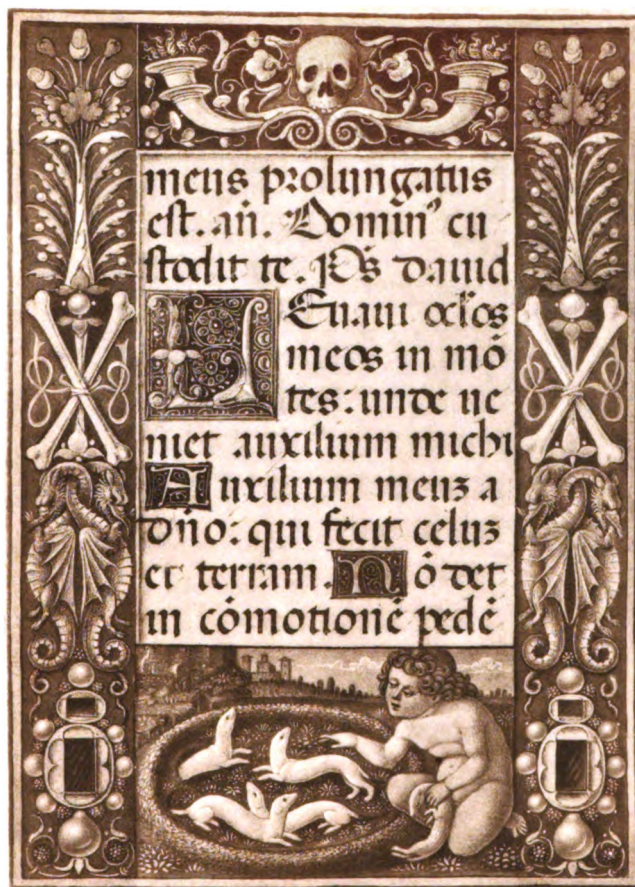 meus prolungatus
est. an̄. Domin⁹ cu
stodit te. Ps̄ dauid
LEuaui oc̄los
meos in mō
tes: unde ue
niet auxilium michi
Auxilium meuʒ a
dn̄o: qui fecit celuʒ
et terram. Nō det
in cōmotionē pedē